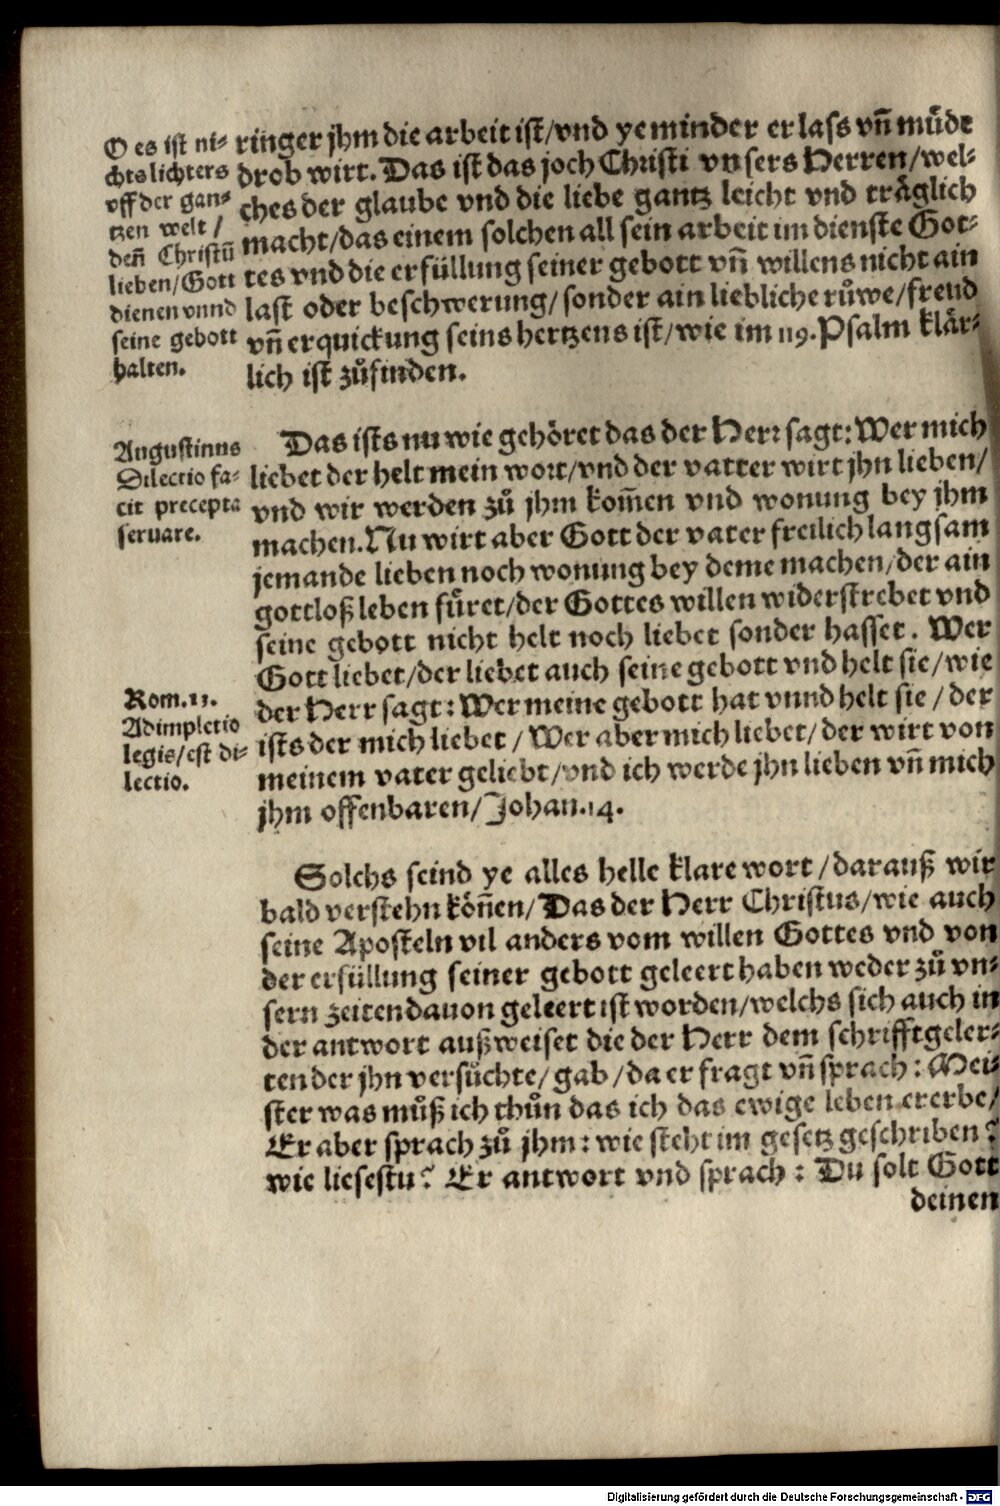 O es ist ni-
chts lichters
vff der gan-
tzen welt /
deñ Christū
lieben/Gott
dienen vnnd
seine gebott
halten.
ringer jhm die arbeit ist/vnd ye minder er lass vñ muͤde
drob wirt. Das ist das joch Christi vnsers Herren/wel-
ches der glaube vnd die liebe gantz leicht vnd traͤglich
macht/das einem solchen all sein arbeit im dienste Got-
tes vnd die erfüllung seiner gebott vñ willens nicht ain
last oder beschwerung/sonder ain liebliche růwe/freud
vñ erquickung seins hertzens ist/wie im 119.Psalm klaͤr-
lich ist zůfinden.
Augustinus
Dilectio fa-
cit precepta
seruare.
Das ists nu wie gehöret das der Herr sagt:Wer mich
liebet der helt mein wort/vnd der vatter wirt jhn lieben/
vnd wir werden zů jhm kom̃en vnd wonung bey jhm
machen.Nu wirt aber Gott der vater freilich langsam
jemande lieben noch wonung bey deme machen/der ain
gottloß leben fuͤret/der Gottes willen widerstrebet vnd
seine gebott nicht helt noch liebet sonder hasset. Wer
Gott liebet/der liebet auch seine gebott vnd helt sie/wie
der Herr sagt:Wer meine gebott hat vnnd helt sie / der
ists der mich liebet / Wer aber mich liebet/der wirt von
meinem vater geliebt/vnd ich werde jhn lieben vñ mich
jhm offenbaren/Johan.14.
Rom.13.
Adimpletio
legis/est di-
lectio.
Solchs seind ye alles helle klare wort /darauß wir
bald verstehn köñen/Das der Herr Christus/wie auch
seine Aposteln vil anders vom willen Gottes vnd von
der erfüllung seiner gebott geleert haben weder zů vn-
sern zeiten dauon geleert ist worden/welchs sich auch in
der antwort außweiset die der Herr dem schrifftgeler-
ten der jhn versuͤchte/gab/da er fragt vñ sprach:Mei-
ster was můß ich thůn das ich das ewige leben ererbe/
Er aber sprach zů jhm:wie steht im gesetz geschriben?
wie liesestu? Er antwort vnd sprach: Du solt Gott
deinen
Digitalisierung gefördert durch die Deutsche Forschungsgemeinschaft - DFG